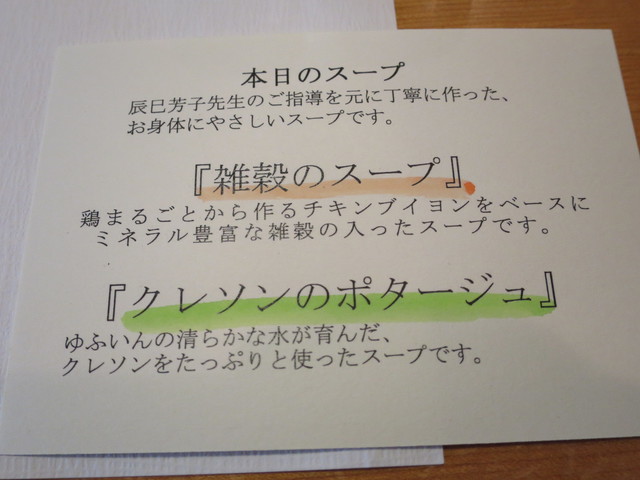 本日のスープ
辰巳芳子先生のご指導を元に丁寧に作った、
お身体にやさしいスープです。
『雑穀のスープ』
鶏まるごとから作るチキンブイヨンをベースに
ミネラル豊富な雑穀の入ったスープです。
『クレソンのポタージュ』
ゆふいんの清らかな水が育んだ、
クレソンをたっぷりと使ったスープです。